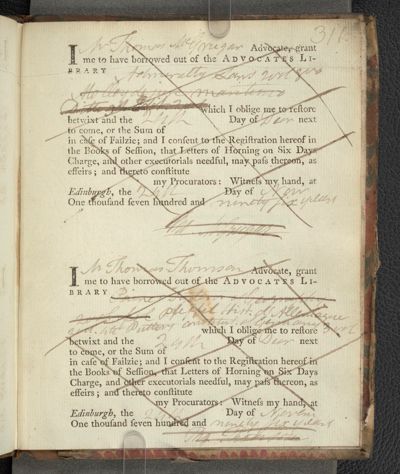 311
I Mr Thomas McGrugar Advocate, grant
me to have borrowed out of the ADVOCATES LI-
BRARY Admiralty Laws
which I oblige me to restore
betwixt and the 24th Day of Decr next
to come, or the Sum of
in case of Failzie; and I consent to the Registration hereof in
the Books of Session, that Letters of Horning on Six Days
Charge, and other executorials needful, may pass thereon, as
effeirs; and thereto constitute
my Procurators: Witness my hand, at
Edinburgh, the 24th Day of Novr
One thousand seven hundred and ninety six years
I Mr Thomas Thomson Advocate, grant
me to have borrowed out of the ADVOCATES LI-
BRARY
Hist. d'Allemagne
Putters Germany 3 vol
which I oblige me to restore
betwixt and the 24th Day of Decr next
to come, or the Sum of
in case of Failzie; and I consent to the Registration hereof in
the Books of Session, that Letters of Horning on Six Days
Charge, and other executorials needful, may pass thereon, as
effeirs; and thereto constitute
my Procurators: Witness my hand, at
Edinburgh, the Day of Novr
One thousand seven hundred and ninety six years